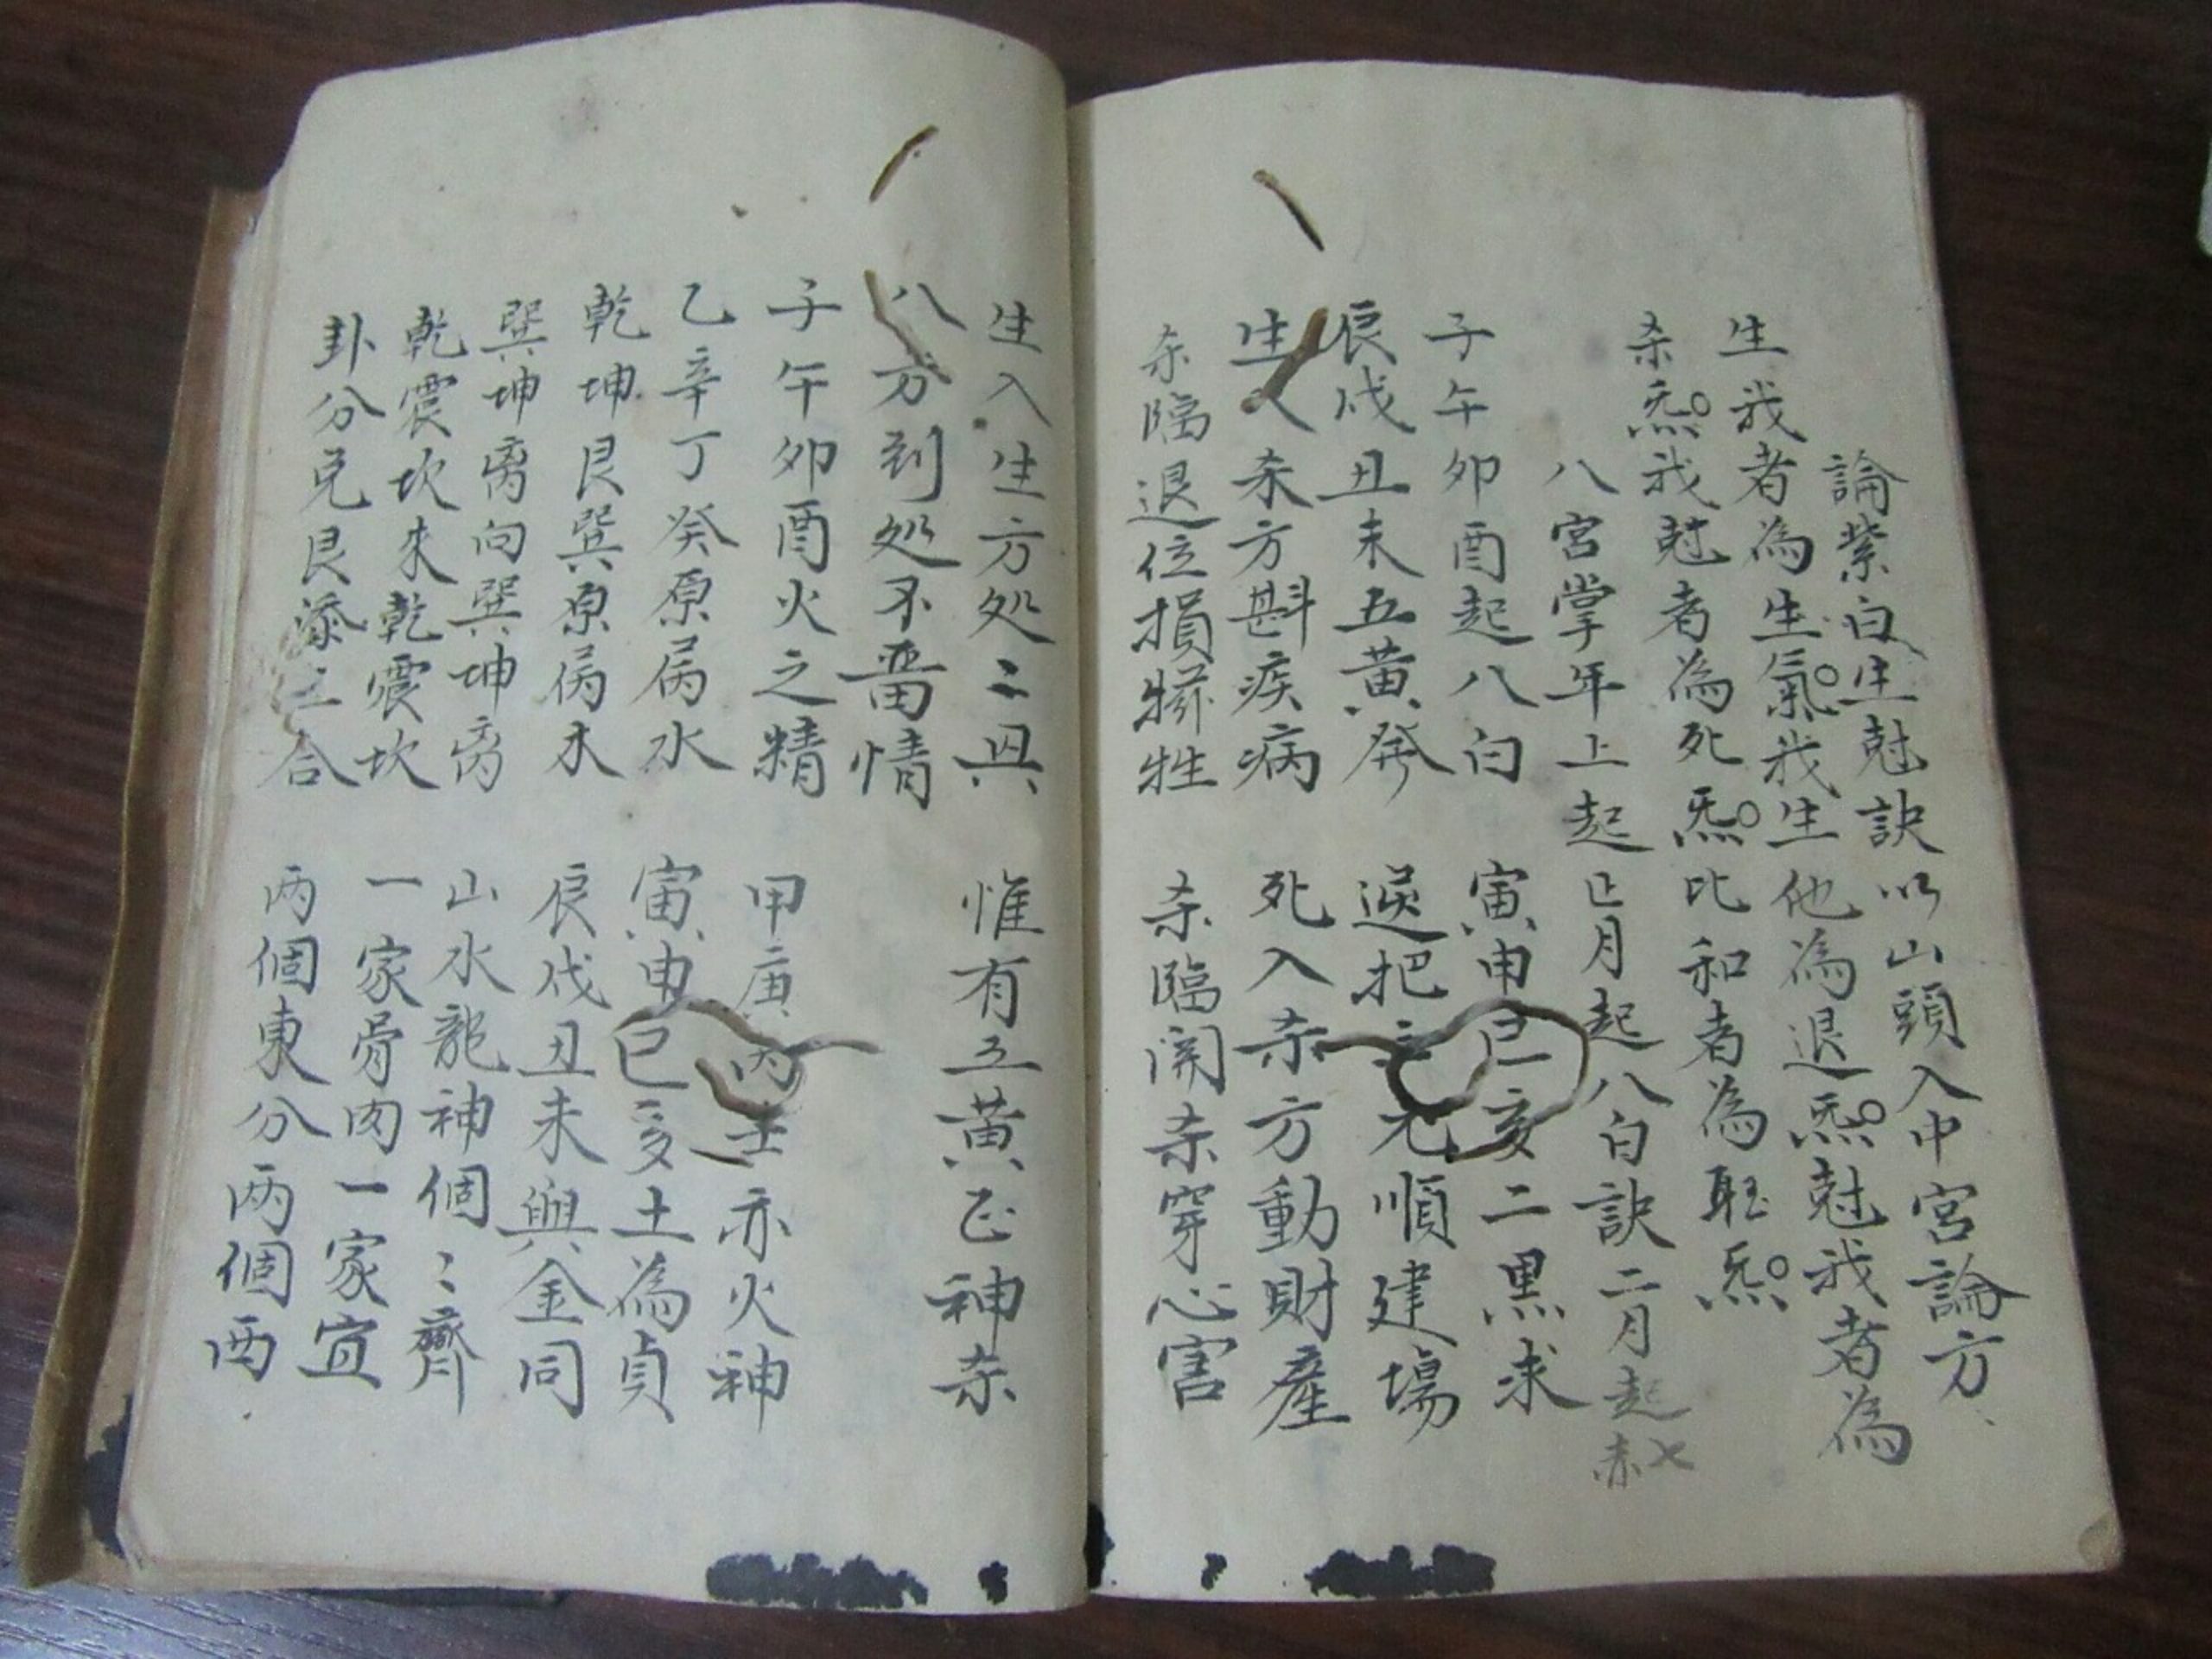 論紫白生尅訣以山頭入中宮論方
生我者為生氣我生他為退炁尅我者為
杀炁我尅者為死炁比和者為旺炁
八宮掌年上起月起八白訣二月起赤
子午卯酉起八白 寅申巳亥二黒求
辰戌丑未五黃發 逆把元順建場
生入杀方斟疾病 死入杀方動財產
杀臨退位損牲 杀臨関杀穿心害
生入生方処〻興 惟有五黃正神杀
八方到処不畱情
子午卯酉火之精 甲庚丙壬亦火神
乙辛丁癸原属水 寅申巳亥土為貞
乾坤艮巽原属木 辰戌丑未與金同
巽坤离向巽坤离 山水龍神個〻齊
乾震坎来乾震坎 一家骨肉一家宜
卦分兑艮添合 两個東分两個西